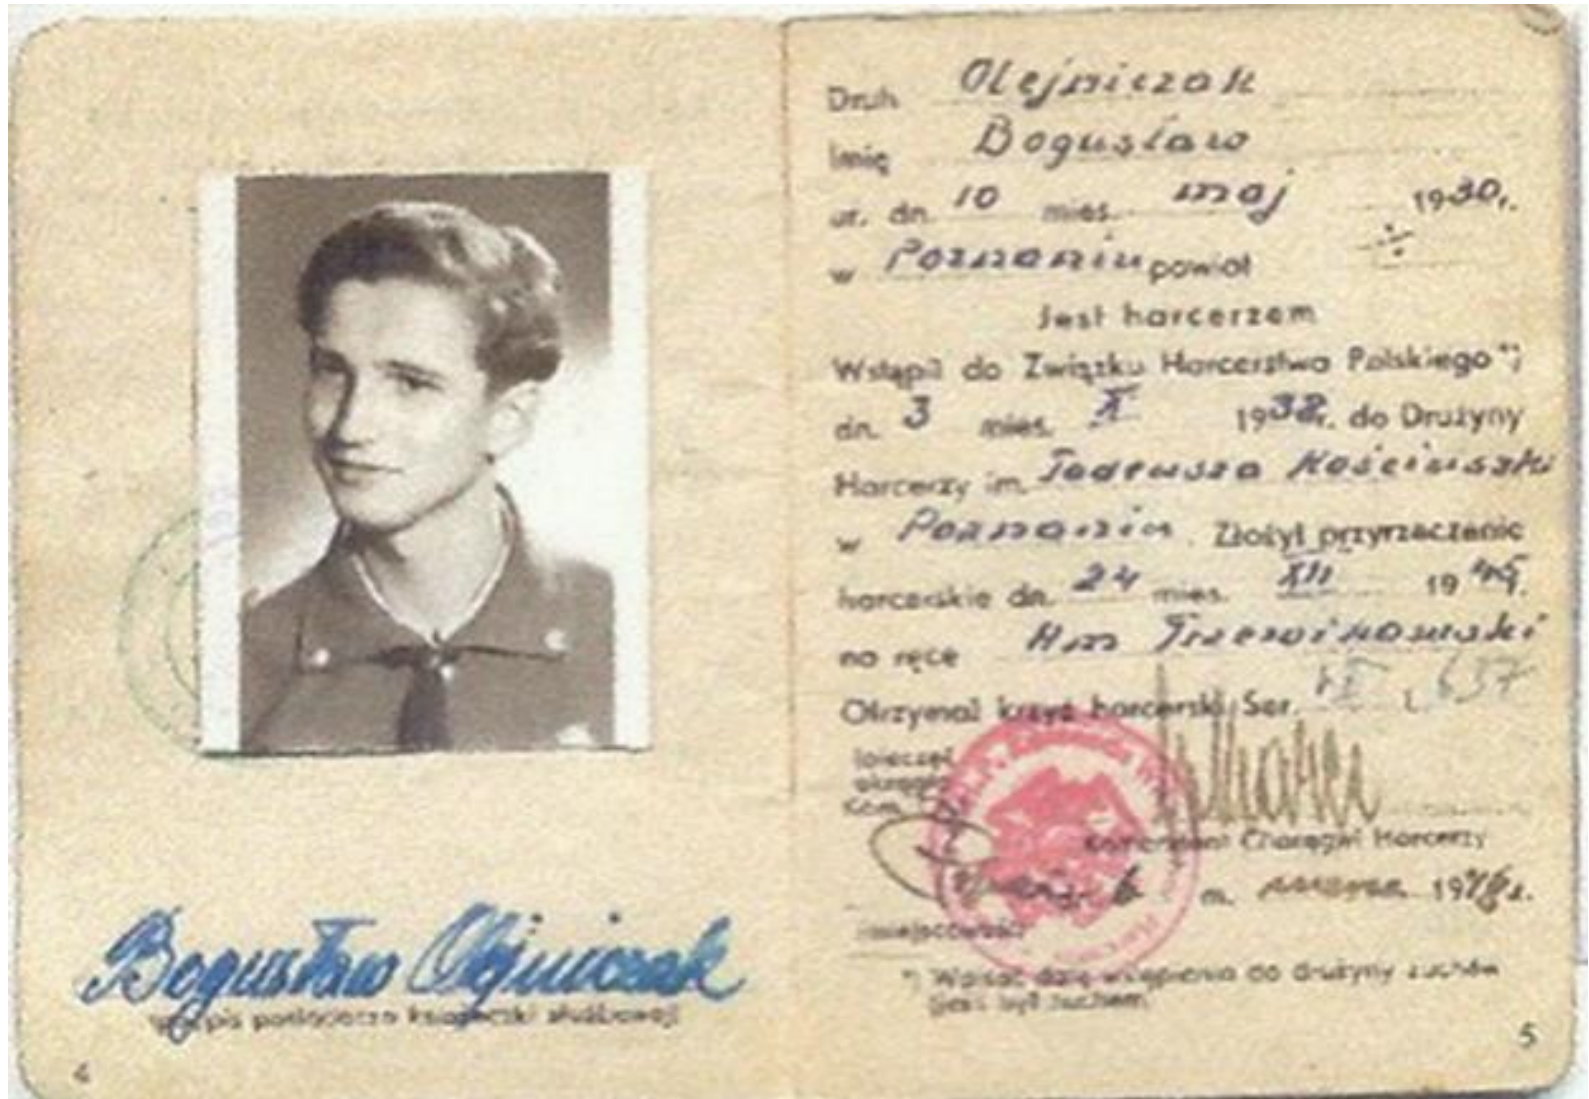 Bogusław Olejniczak
podpis posiadacza książeczki służbowej
4
Druh Olejniczak
Imię Bogusław
ur. dn. 10 mies. maj 1930r.
w Poznaniu powiat ÷
jest harcerzem
Wstąpił do Związku Harcerstwa Polskiego*)
dn. 3 mies. X 1938r. do Drużyny
Harcerzy im. Tadeusza Kościuszki
w Poznaniu. Złożył przyrzeczenie
harcerskie dn. 24 mies. XII 1945.
na ręce Hm
Otrzymał krzyż harcerski Ser. L. 637
Komendant Chorągwi Harcerzy
6 m. marca 1946r.
miejscowość
*) Wpisać datę wstąpienia do drużyny zuchów
jeśli był zuchem.
5